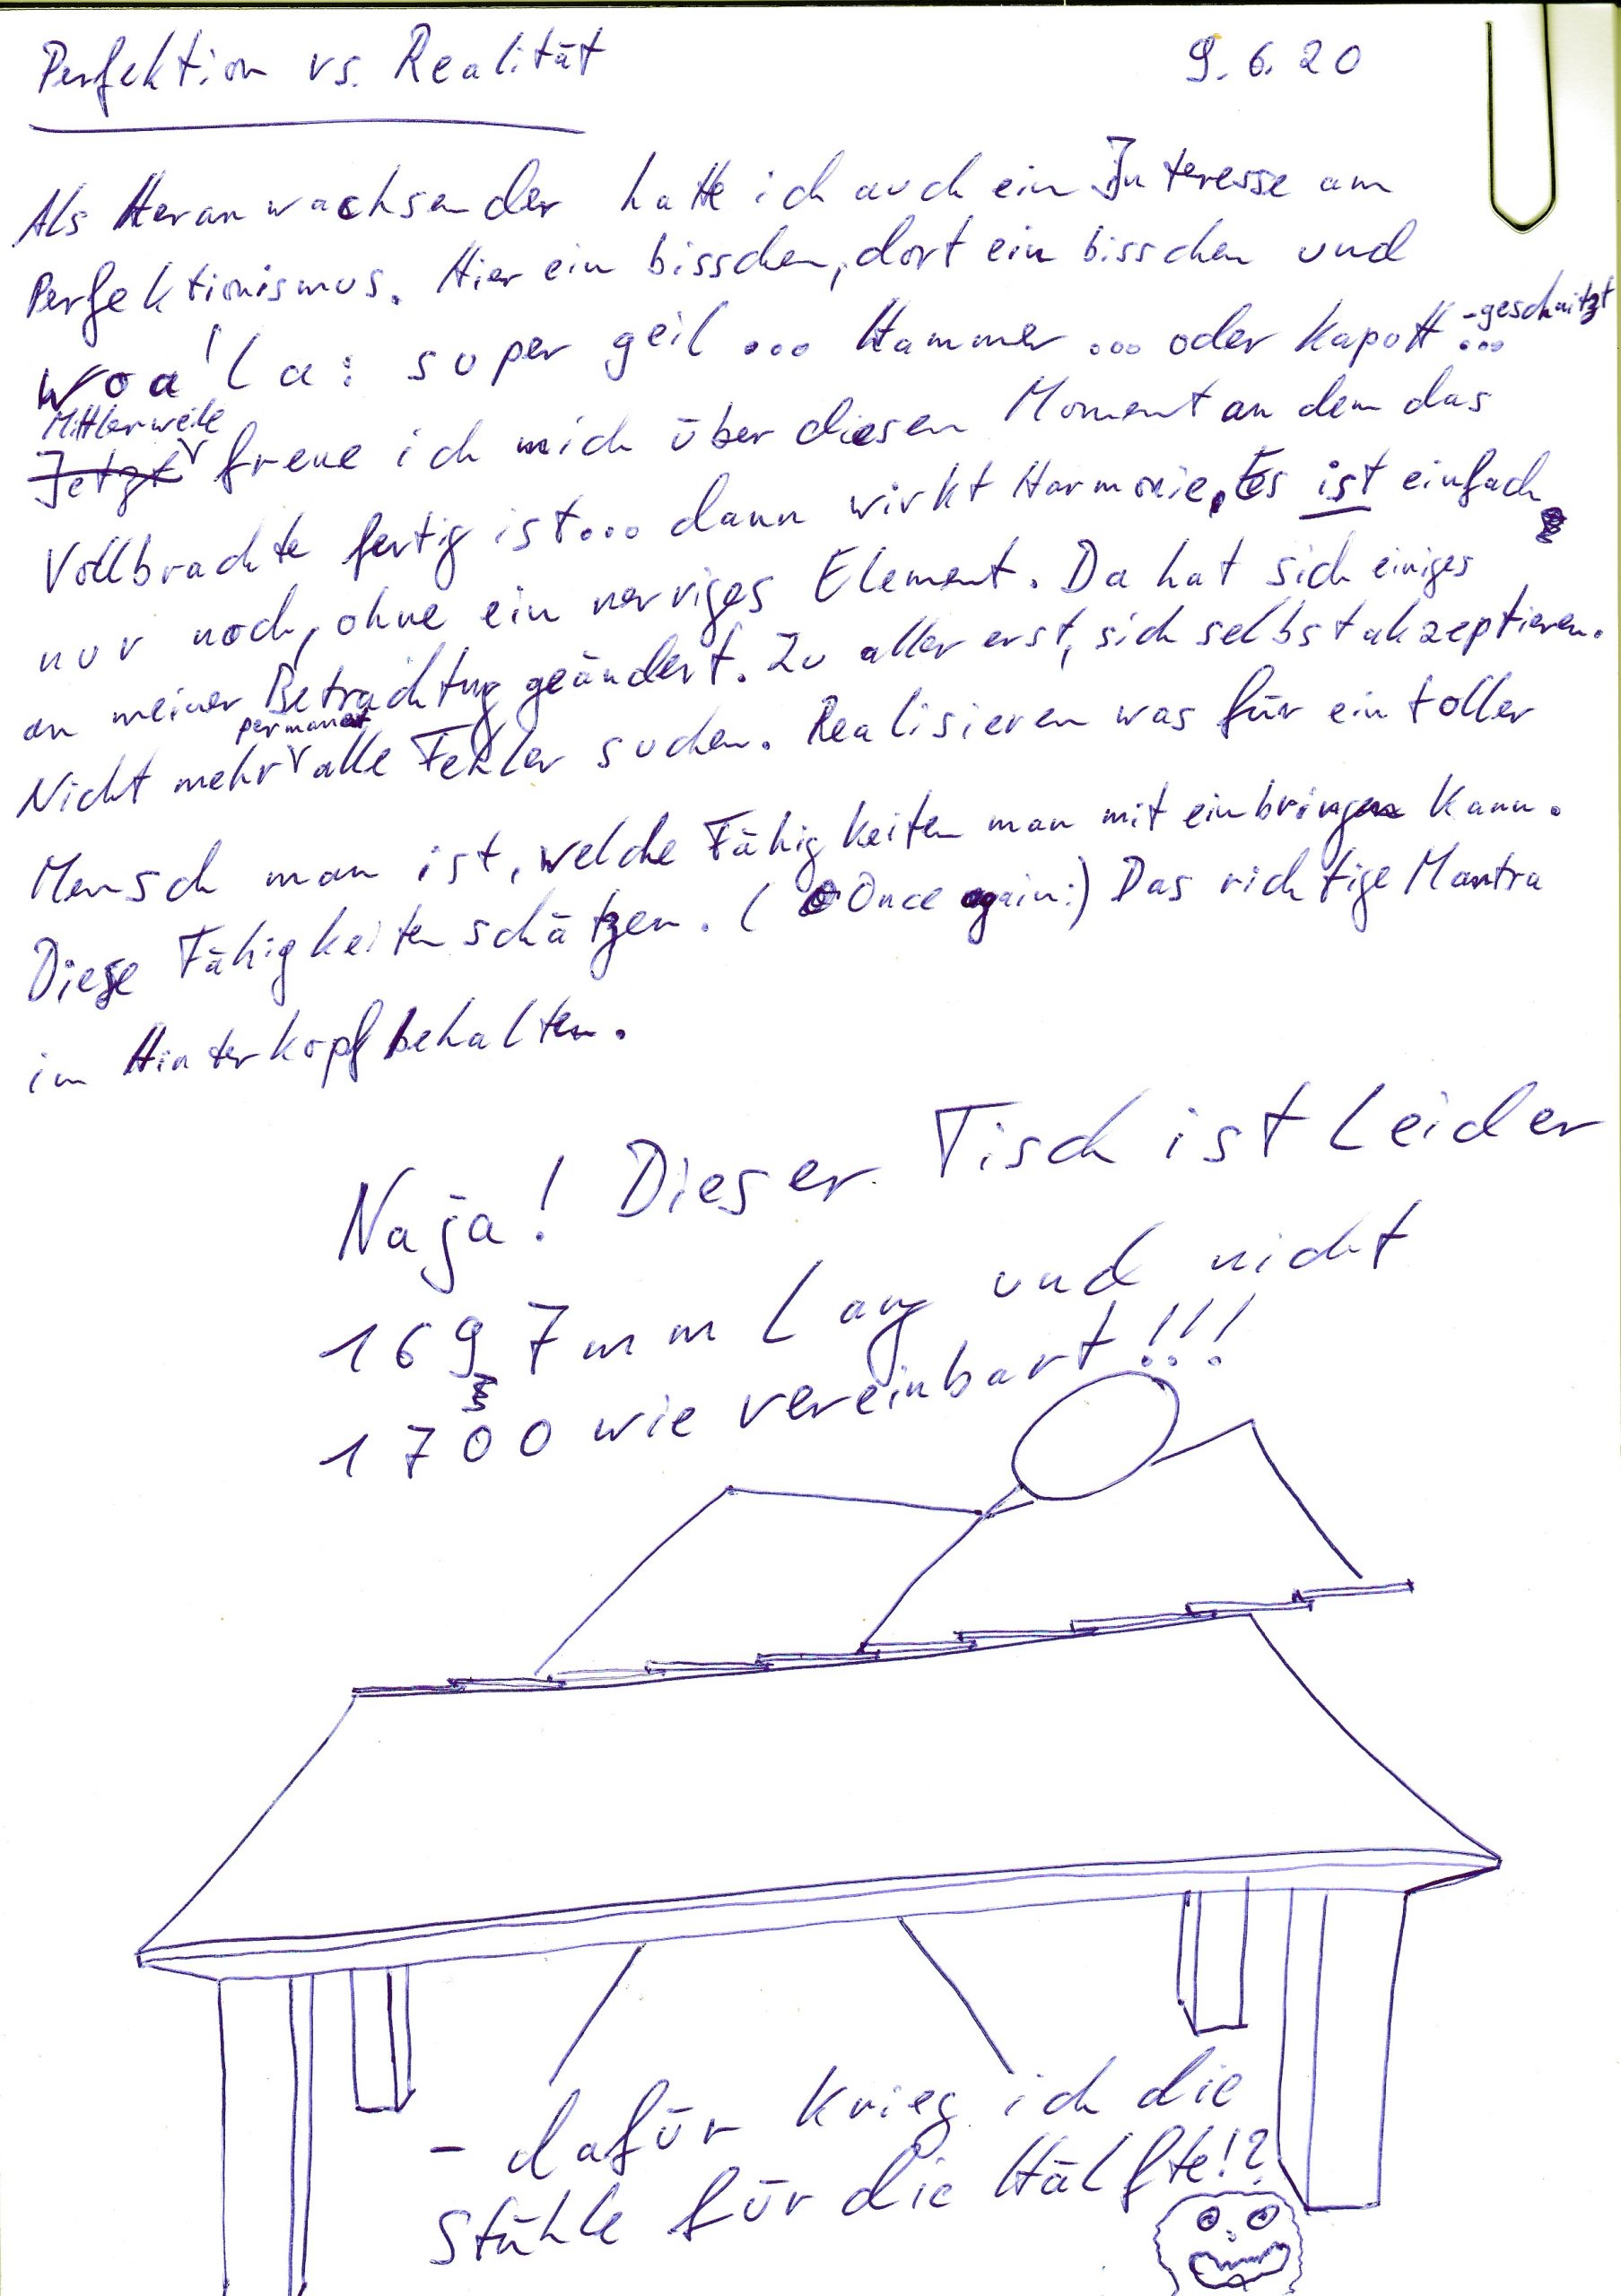 Perfektion vs. Realität 9.6.20
Als Heranwachsender hatte ich auch ein Interesse am
Perfektionismus. Hier ein bisschen, dort ein bisschen und
woa'la: super geil ... Hammer ... oder kaputt-geschnitzt ...
Jetzt Mittlerweile freue ich mich über diesen Moment an dem das
Vollbrachte fertig ist... dann wirkt Harmonie, Es ist einfach
nur noch, ohne ein nerviges Element. Da hat sich einiges
an meiner Betrachtung geändert. Zu aller erst, sich selbst akzeptieren.
Nicht mehr permanent alle Fehler suchen. Realisieren was für ein toller
Mensch man ist, welche Fähigkeiten man mit einbringen kann.
Diese Fähigkeiten schätzen. (Once again:) Das richtige Mantra
im Hinterkopf behalten.
Naja! Dieser Tisch ist leider
1697mm lang und nicht
1700 wie vereinbart!!!
- dafür krieg ich die
Stühle für die Hälfte!?